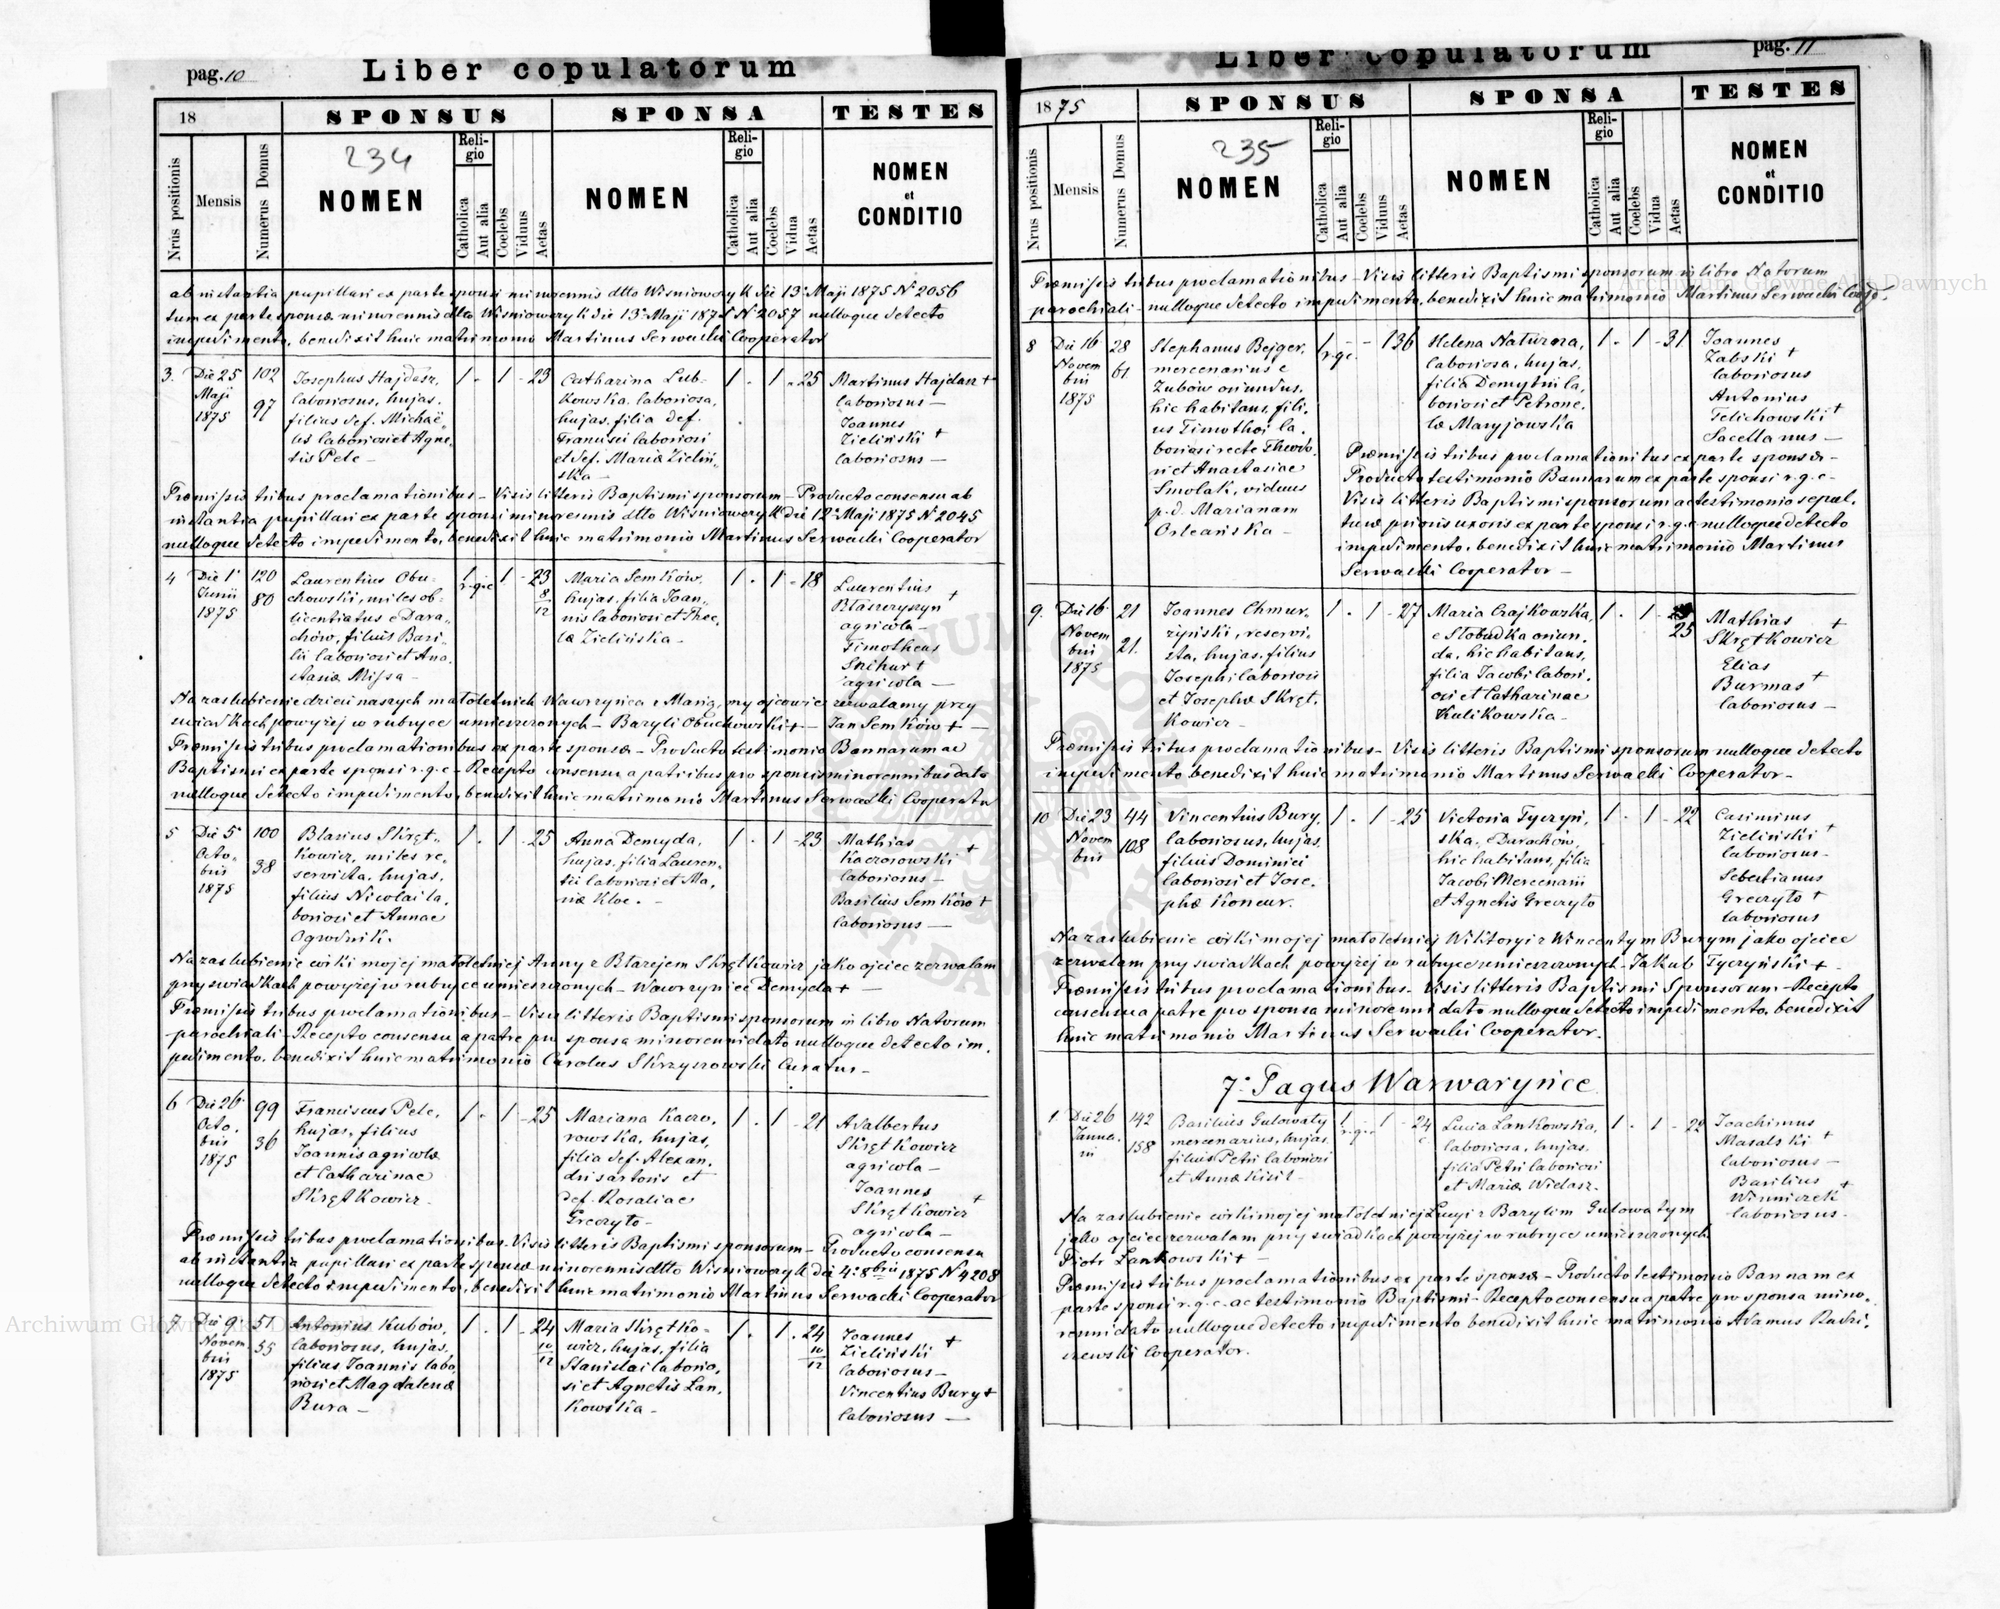 pag. 10
Liber copulatorum
18
SPONSUS
SPONSA
TESTES
Nrus positionis
Mensis
Numerus Domus
234
NOMEN
Religio
Catholica
Aut alia
Coelebs
Viduus
Aetas
NOMEN
Religio
Catholica
Aut alia
Coelebs
Vidua
Aetas
NOMEN
et
CONDITIO
ab instantia pupillari ex parte sponsi minorennis dtto Wisniowczyk die 13 Maji 1875 N 2056
tum ex parte sponsæ minorennis dtto Wisniowczyk die 13 Maji 1875 N 2057 nulloque detecto
impedimento, benedixit huic matrimonio Martinus Serwacki Cooperator
3. Die 25 Maji 1875
102
97
Josephus Hajdasz,
laboriosus, hujas,
filius def. Michaë-
lis laboriosi et Agne-
tis Pele -
1 - 1 - 23
Catharina Lub-
kowska, laboriosa,
hujas, filia def.
Francisci laboriosi
et def. Mariæ Zieliń-
ska -
1 - 1 - 25
Martinus Hajdasz +
laboriosus -
Joannes
Zieliński +
laboriosus -
Præmissis tribus proclamationibus - Visis litteris Baptismi sponsorum - Producto consensu ab
instantia pupillari ex parte sponsi minorennis dtto Wisniowczyk die 12 Maji 1875 N 2045
nulloque detecto impedimento, benedixit huic matrimonio Martinus Serwacki Cooperator
4 Die 1 Junii 1875
120
80
Laurentius Obu-
chowski, miles ob-
licentiatus e Dara-
chów, filius Basi-
lii laboriosi et Ana-
stasiæ Missa -
1 r.g.c. 1 - 23 8/12
Maria Semków,
hujas, filia Joan-
nis laboriosi et Thec-
læ Zielińska -
1 - 1 - 18
Laurentius
Błaszczyszyn +
agricola -
Timotheus
Snihur +
agricola -
Na zaślubienie dzieci naszych małoletnich Wawrzyńca z Maryą, my ojcowie zezwalamy przy
świadkach powyżej w rubryce umieszczonych - Bazyli Obuchowski + - Jan Semków + -
Præmissis tribus proclamationibus ex parte sponsæ - Producto testimonio Bannarum ac
Baptismi ex parte sponsi r.g.c. - Recepto consensu a patribus pro sponsis minorennibus dato
nulloque detecto impedimento, benedixit huic matrimonio Martinus Serwacki Cooperator
5 Die 5 Octobris 1875
100
38
Blasius Skręt-
kowicz, miles re-
servista, hujas,
filius Nicolai la-
boriosi et Annae
Ogrodnik.
1 - 1 - 25
Anna Demyda,
hujas, filia Lauren-
tii laboriosi et Ma-
riæ Kloc. -
1 - 1 - 23
Mathias
Kaczorowski +
laboriosus -
Basilius Semków +
laboriosus -
Na zaślubienie córki mojej małoletniej Anny z Błażejem Skrętkowicz jako ojciec zezwalam
przy świadkach powyżej w rubryce umieszczonych - Wawrzyniec Demyda + -
Præmissis tribus proclamationibus - Visis litteris Baptismi sponsorum in libro Natorum
parochiali - Recepto consensu a patre pro sponsa minorenni dato nulloque detecto im-
pedimento, benedixit huic matrimonio Carolus Skrzyszowski Curatus -
6 Die 26 Octobris 1875
99
36
Franciscus Pele,
hujas, filius
Joannis agricolæ
et Catharinae
Skrętkowicz -
1 - 1 - 25
Mariana Kaczo-
rowska, hujas,
filia def. Alexan-
dri sartoris et
def. Rosaliae
Greczyło -
1 - 1 - 21
Adalbertus
Skrętkowicz
agricola -
Joannes
Skrętkowicz +
agricola -
Præmissis tribus proclamationibus - Visis litteris Baptismi sponsorum - Producto consensu
ab instantia pupillari ex parte sponsæ minorennis dtto Wisniowczyk die 4 8bris 1875 N 4208
nulloque detecto impedimento, benedixit huic matrimonio Martinus Serwacki Cooperator
7 Die 9 Novembris 1875
51
55
Antonius Kubów,
laboriosus, hujas,
filius Joannis labo-
riosi et Magdalenæ
Bura -
1 - 1 - 24 10/12
Maria Skrętko-
wicz, hujas, filia
Stanislai laborio-
si et Agnetis Lan-
kowska -
1 - 1 - 24 10/12
Joannes
Zieliński +
laboriosus -
Vincentius Bury +
laboriosus -
pag. 11
Liber copulatorum
1875
SPONSUS
SPONSA
TESTES
Nrus positionis
Mensis
Numerus Domus
235
NOMEN
Religio
Catholica
Aut alia
Coelebs
Viduus
Aetas
NOMEN
Religio
Catholica
Aut alia
Coelebs
Vidua
Aetas
NOMEN
et
CONDITIO
Præmissis tribus proclamationibus - Visis litteris Baptismi sponsorum in libro Natorum
parochiali - nulloque detecto impedimento, benedixit huic matrimonio Martinus Serwacki Coop.
8 Die 16 Novembris 1875
28
61
Stephanus Bejger,
mercenarius e
Zubów oriundus,
hic habitans, fili-
us Timothei la-
boriosi recte Theodo-
ri et Anastasiae
Smolak, viduus
p. d. Marianam
Orleańska -
1 r.g.c. - - 1 36
Helena Naturna,
laboriosa, hujas,
filia Demytrii la-
boriosi et Petrone-
læ Maryjowska
1 - 1 - 31
Joannes
Zabski +
laboriosus
Antonius
Telichowski +
Sacellanus -
Præmissis tribus proclamationibus ex parte sponsæ -
Producto testimonio Bannarum ex parte sponsi r.g.c. -
Visis litteris Baptismi sponsorum ac testimonio sepul-
turæ prioris uxoris ex parte sponsi r.g.c. nulloque detecto
impedimento, benedixit huic matrimonio Martinus
Serwacki Cooperator -
9. Die 16 Novembris 1875
21
21.
Joannes Chmur-
zyński, reservi-
sta, hujas, filius
Josephi laboriosi
et Josephæ Skręt-
kowicz -
1 - 1 - 27
Maria Czajkowska,
e Słobudka oriun-
da, hic habitans,
filia Jacobi labori-
osi et Catharinae
Kulikowska -
1 - 1 - 25
Mathias
Skrętkowicz +
Elias
Burmas +
laboriosus -
Præmissis tribus proclamationibus - Visis litteris Baptismi sponsorum nulloque detecto
impedimento benedixit huic matrimonio Martinus Serwacki Cooperator -
10 Die 23 Novembris
44
108
Vincentius Bury,
laboriosus, hujas,
filius Dominici
laboriosi et Jose-
phæ Koncur.
1 - 1 - 25
Victoria Tyczyń-
ska, e Darachów,
hic habitans, filia
Jacobi Mercenarii
et Agnetis Greczyło
1 - 1 - 22
Casimirus
Zieliński +
laboriosus -
Sebastianus
Greczyło +
laboriosus
Na zaślubienie córki mojej małoletniej Wiktoryi z Wincentym Burym jako ojciec
zezwalam przy świadkach powyżej w rubryce umieszczonych - Jakub Tyczyński + -
Præmissis tribus proclamationibus - Visis litteris Baptismi Sponsorum - Recepto
consensu a patre pro sponsa minorenni dato nulloque detecto impedimento, benedixit
huic matrimonio Martinus Serwacki Cooperator.
7. Pagus Warwaryńce
1. Die 26 Januarii
142
158
Basilius Gulowaty
mercenarius, hujas,
filius Petri laboriosi
et Annæ Kicił -
1 r.g.c. - 1 - 24
Lucia Lankowska,
laboriosa, hujas,
filia Petri laboriosi
et Mariæ Widasz -
1 - 1 - 22
Joachimus
Masalski +
laboriosus -
Basilius
Winniczek +
laboriosus -
Na zaślubienie córki mojej małoletniej Łucyi z Bazylim Gulowatym
jako ojciec zezwalam przy świadkach powyżej w rubryce umieszczonych
Piotr Lankowski +
Præmissis tribus proclamationibus ex parte sponsæ - Producto testimonio Bannarum ex
parte sponsi r.g.c. ac testimonio Baptismi - Recepto consensu a patre pro sponsa mino-
renni dato nulloque detecto impedimento benedixit huic matrimonio Adamus Radzi-
szewski Cooperator.
Archiwum Główne Akt Dawnych
Archiwum Główne Akt Dawnych